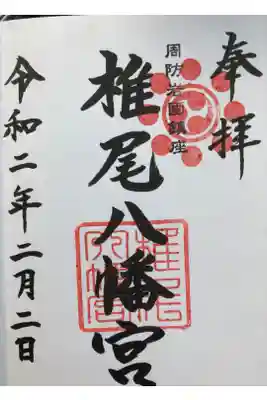 奉拝
周防岩国鎮座
椎尾八幡宮
椎尾八幡宮
令和二年二月二日